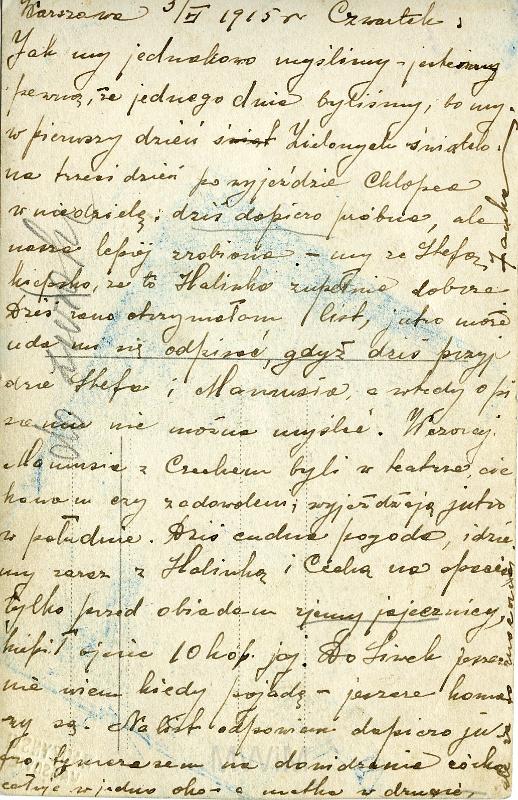 Warszawa 3/VI 1915 r Czwartek.
Jak my jednakowo myślimy – jestem
pewną, że jednego dnia byliśmy, bo my
w pierwszy dzień świąt Zielonych Świątek.
na trzeci dzień po wyjeździe Chłopca
w niedzielę; dziś dopiero próbna, ale
nasza lepiej zrobiona – my ze Stefą
kiepsko, za to Halinka zupełnie dobrze
Dziś rano otrzymałam list, jutro może
uda mi się odpisać, gdyż dziś przyj
dzie Stefa i Manusia, a wtedy o pi
saniu nie można myśleć. Wczoraj
Manusia z Czechem byli w teatrze cie
kawam czy zadowoleni; wyjeżdżają jutro
w południe. Dziś cudna pogoda, idzie
my zaraz z Halinką i Cechą na spacer
tylko przed obiadem zjemy jajecznicy,
kupił ojciec 10 kop. jaj. Do Siwek jeszcze
nie wiem kiedy pojadę – jeszcze koma
ry są. Na list odpowiem dopiero ju
tro tymczasem na dowidzenia córka
całuje w jedno oko – a matka w drugie.
Janka
MWiM